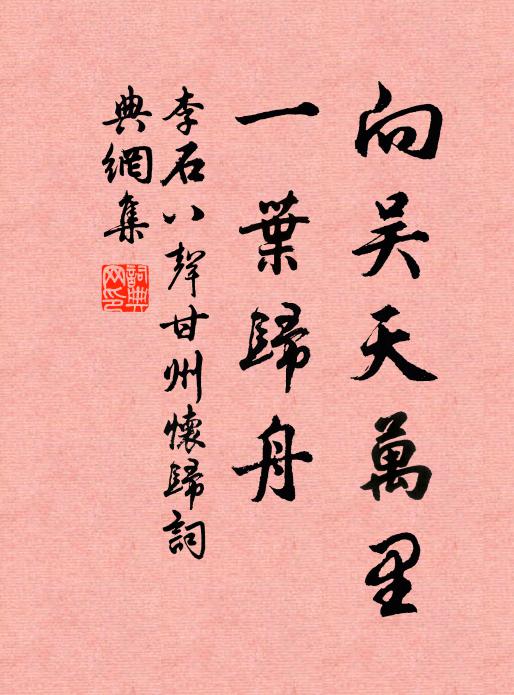 向吴天萬里
一葉歸舟
李石八聲甘州懷歸詞
典網集
詞典網印